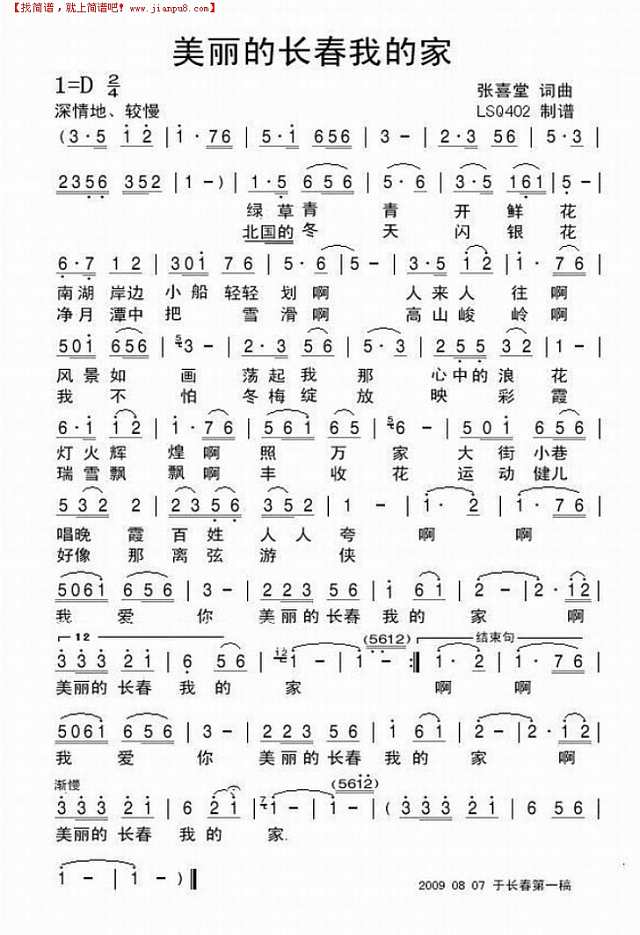 【找简谱，就上简谱吧! www.jianpu8.com】
美丽的长春我的家
1=D 2/4
张喜堂 词曲
深情地、较慢
LSQ402 制谱
(3·5 1 2 | 1·76 | 5·1 6 5 | 3 - | 2·3 56 |
2356 352 | 1 -) | 1·5 656 | 5· | 3·5 161 | 5 -
绿草青 青 开 鲜 花
北国的冬 天 闪 银 花
6·7 12 | 301 76 | 5·6 | 5 - | 3·5 12 | 1·76 |
南湖 岸边 小船 轻轻 划啊 人来人 往啊
净月 潭中 把 雪 滑啊 高山峻 岭啊
501 656 | 3 - | 2·3 56 | 5·3 | 255 32 | 1 - |
风景如 画 荡起我 那 心中的 浪 花
我 不 怕 冬梅绽 放 映 彩 霞
6·1 12 | 1·76 | 561 65 | 6· | 565 35 |
灯火辉 煌啊 照 万 家 大街小巷
瑞雪飘 飘啊 丰 收 花 运动健儿
532 2 | 2356 352 | 1 - | 1·2 | 1·76 |
唱晚 霞 百姓 人人 夸 啊 啊
好像 那 离弦 游 侠
5061 656 | 3 - | 223 56 | 1 61 | 2 - | 2·12 |
我 爱 你 美丽的长春 我的 家 啊
12
(5612)
结束句
333 21 | 6 56 | 1 - | 1 - :| 1·2 | 1·76 |
美丽的 长春 我 的 家 啊 啊
5061 656 | 3 - | 223 56 | 1 61 | 2 - | 2·12 |
我 爱 你 美丽的长春 我的 家 啊
渐慢
(5612)
333 21 | 6 21 | 1 - | 1 - | (333 21 | 6 56 |
美丽的 长春 我 的 家.
1 - | 1 -)
2009 08 07 于长春第一稿